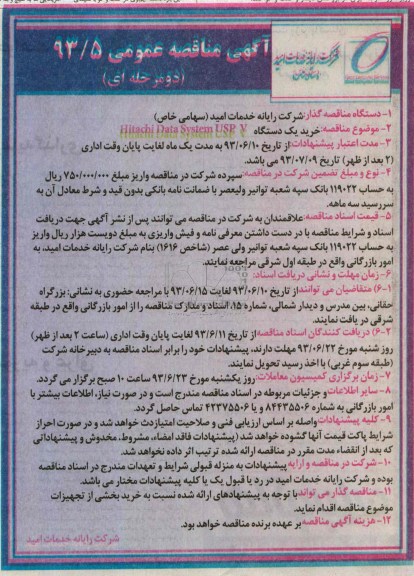 آگهی مناقصه عمومی ۹۳/۵
(دو مرحله ای)
شرکت رایانه خدمات امید
۱- دستگاه مناقصه گذار: شرکت رایانه خدمات امید (سهامی خاص)
۲- موضوع مناقصه: خرید یک دستگاه Hitachi Data System USP V
۳- مدت اعتبار پیشنهادات: از تاریخ ۹۳/۰۶/۱۰ به مدت یک ماه لغایت پایان وقت اداری
(۲ بعد از ظهر) تاریخ ۹۳/۰۷/۰۹ می باشد.
۴- نوع و مبلغ تضمین شرکت در مناقصه: سپرده شرکت در مناقصه واریز مبلغ ۷۵۰/۰۰۰/۰۰۰ ریال
به حساب ۱۱۹۰۲۲ بانک سپه شعبه توانیر ولیعصر یا ضمانت نامه بانکی بدون قید و شرط معادل آن به
سررسید سه ماهه.
۵- قیمت اسناد مناقصه: علاقمندان به شرکت در مناقصه می توانند پس از نشر آگهی جهت دریافت
اسناد و شرایط مناقصه با در دست داشتن معرفی نامه و فیش واریزی به مبلغ دویست هزار ریال واریز
به حساب ۱۱۹۰۲۲ بانک سپه شعبه توانیر ولی عصر (شاخص ۱۶۱۶) بنام شرکت رایانه خدمات امید، به
امور بازرگانی واقع در طبقه اول شرقی مراجعه نمایند.
۶- زمان مهلت و نشانی دریافت اسناد:
۶-۱) متقاضیان می توانند از تاریخ ۹۳/۰۶/۱۰ لغایت ۹۳/۰۶/۱۵ با مراجعه حضوری به نشانی: بزرگراه
حقانی، بین مدرس و دیدار شمالی، شماره ۱۵، اسناد و مدارک مناقصه را از امور بازرگانی واقع در طبقه
شرقی دریافت نمایند.
۶-۲) دریافت کنندگان اسناد مناقصه از تاریخ ۹۳/۶/۱۱ لغایت پایان وقت اداری (ساعت ۲ بعد از ظهر)
روز شنبه مورخ ۹۳/۰۶/۲۲ مهلت دارند، پیشنهادات خود را برابر اسناد مناقصه به دبیرخانه شرکت
(طبقه سوم غربی) با اخذ رسید تحویل نمایند.
۷- زمان برگزاری کمیسیون معاملات: روز یکشنبه مورخ ۹۳/۶/۲۳ ساعت ۱۰ صبح برگزار می گردد.
۸- سایر اطلاعات و جزئیات مربوطه در اسناد مناقصه مندرج است و در صورت نیاز، اطلاعات بیشتر با
امور بازرگانی به شماره ۸۴۴۳۵۵۰۶ و یا ۴۲۳۷۵۵۰۶ تماس حاصل گردد.
۹- کلیه پیشنهادات واصله بر اساس ارزیابی فنی و صلاحیت امتیازدت خواهد شد و در صورت احراز
شرایط پاکت قیمت آنها گشوده خواهد شد (پیشنهادات فاقد امضاء، مشروط، مخدوش و پیشنهاداتی
که بعد از انقضاء مدت مقرر در مناقصه ارائه شده ترتیب اثر داده نخواهد شد.
۱۰- شرکت در مناقصه و ارایه پیشنهادات به منزله قبولی شرایط و تعهدات مندرج در اسناد مناقصه
بوده و شرکت رایانه خدمات امید در رد یا قبول یک یا کلیه پیشنهادات مختار می باشد.
۱۱- مناقصه گذار می تواند با توجه به پیشنهادهای ارائه شده نسبت به خرید بخشی از تجهیزات
موضوع مناقصه اقدام نماید.
۱۲- هزینه آگهی مناقصه بر عهده برنده مناقصه خواهد بود.
شرکت رایانه خدمات امید